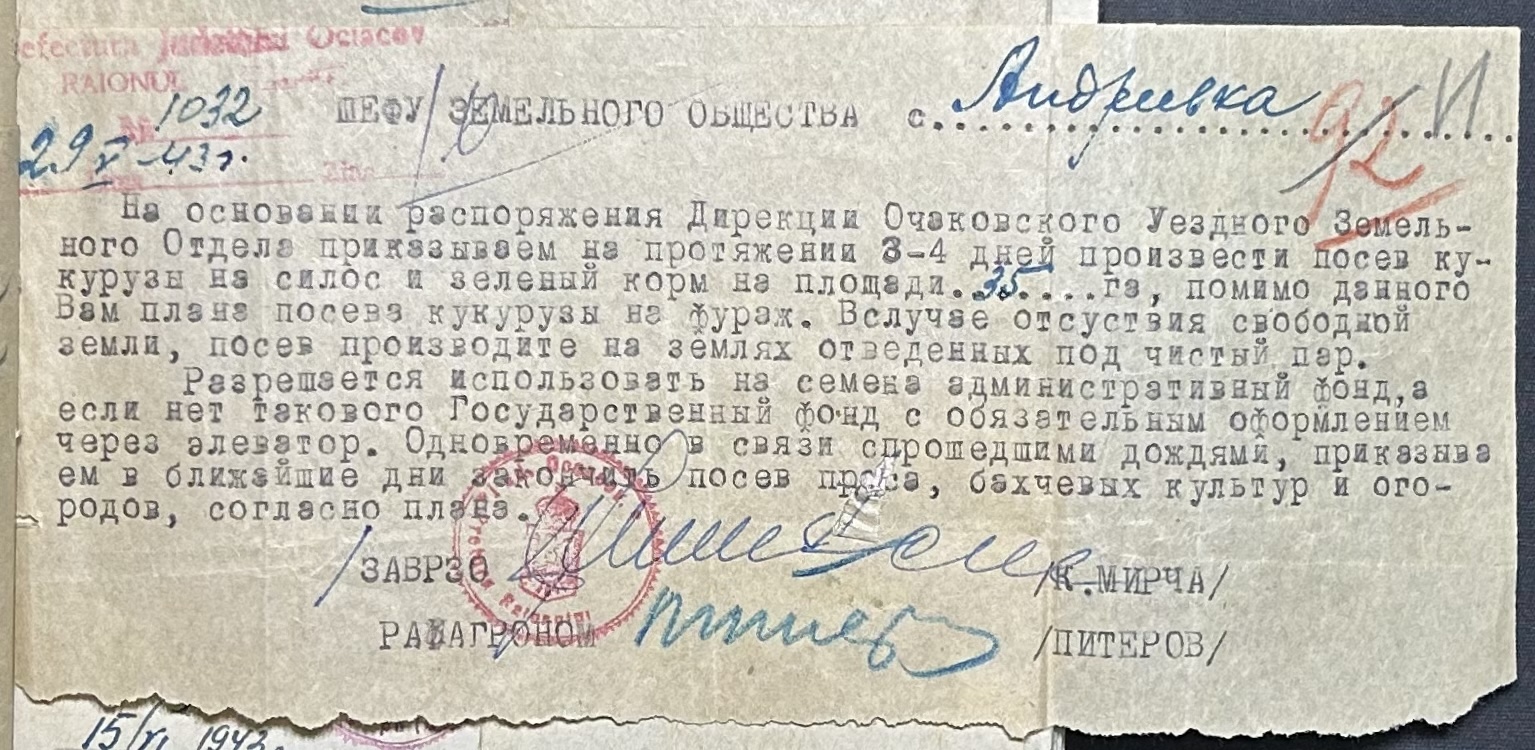 Prefectura Județului Oceacov
RAIONUL
№ 1032
29 V-43 г.
ШЕФУ ЗЕМЕЛЬНОГО ОБЩЕСТВА с. Андриевка
92
На основании распоряжения Дирекции Очаковского Уездного Земель-
ного Отдела приказываем на протяжении 3-4 дней произвести посев ку-
курузы на силос и зеленый корм на площади..35....га, помимо данного
Вам плана посева кукурузы на фураж. Вслучае отсуствия свободной
земли, посев производите на землях отведенных под чистый пар.
Разрешается использовать на семена административный фонд,а
если нет такового Государственный фонд с обязательным оформлением
через элеватор. Одновременно в связи спрошедшими дождями, приказыва
ем в ближайшие дни закончить посев проса, бахчевых культур и ого-
родов, согласно плана.
/ЗАВРЗО /К.МИРЧА/
РАЙАГРОНОМ /ПИТЕРОВ/
15/VI 1943.